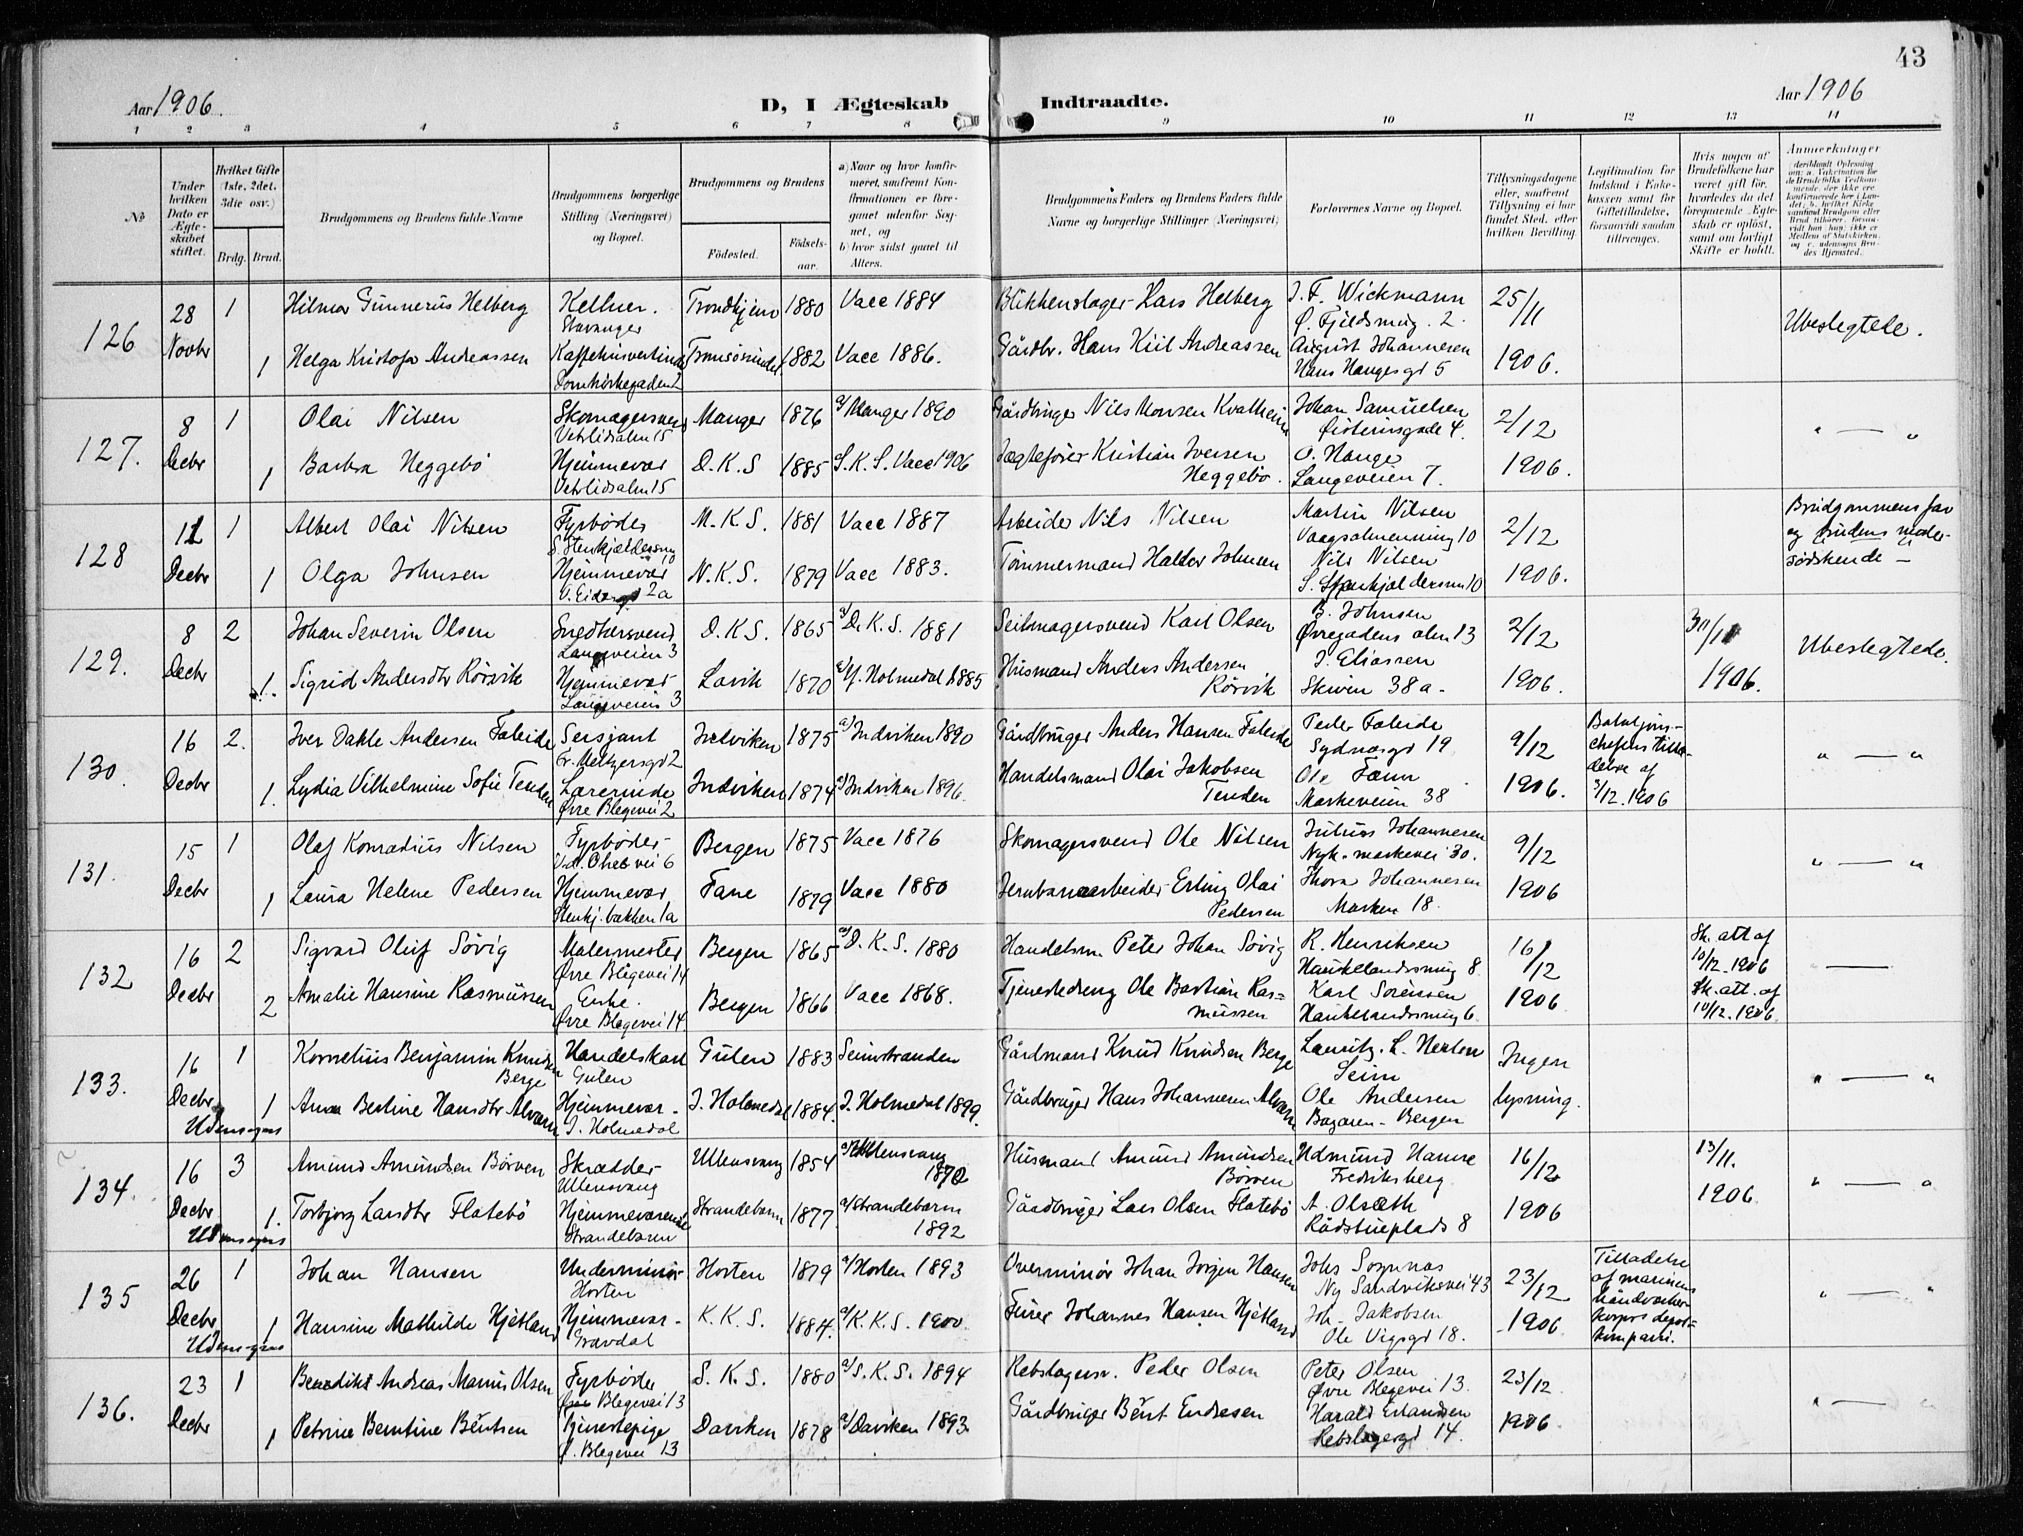 43
Aar 1906.
D, I Ægteskab Indtraadte.
Aar 1906
1 2 3 4 5 6 7 8 9 10 11 12 13 14
No
Under hvilken Dato er Ægteskabet stiftet.
Hvilket Gifte (1ste, 2det, 3die osv.)
Brdg. Brud.
Brudgommens og Brudens fulde Navne
Brudgommens borgerlige Stilling (Næringsvei) og Bopæl.
Brudgommens og Brudens
Fødested.
Fødselsaar.
a) Naar og hvor konfirmeret, saafremt Konfirmationen er foregaaet udenfor Sognet, og
b) hvor sidst gaaet til Alters.
Brudgommens Faders og Brudens Faders fulde Navne og borgerlige Stillinger (Næringsvei)
Forlovernes Navne og Bopæl.
Tillysningsdagene eller, saafremt Tillysning ei har fundet Sted, efter hvilken Bevilling.
Legitimation for Indskud i Enkekassen samt for Giftetilladelse, forsaavidt saadan tiltrænges.
Hvis nogen af Brudefolkene har været gift før, hvorledes da det foregaaende Ægteskab er opløst, samt om lovligt Skifte er holdt.
Anmærkninger
126
28 Novbr 1 Hilmar Gunnerus Helberg Kellner. Stavanger Trondhjem 1880 Vacc 1884 Blikkenslager Lars Helberg J. F. Wickmann Ø. Fjeldsmug. 2. 25/11 Ubeslegtede.
1 Helga Kristofa Andreassen Kaffehusvertinde Domkirkegaden 2 Tromsøsundet 1882 Vacc 1886. Gårdbr. Hans Kiil Andreassen August Johannesen Hans Haugesgd 5 1906.
127.
8 Decbr 1 Olai Nilsen Skomagersvend Vetrlidsalm 15 Manger 1876 a/ Manger 1890 Gårdbruger Nils Monsen Kvalheim Johan Samuelsen 4. 2/12 " — "
1 Barbra Heggebø Hjemmevær Vetrlidsalm 15 D.K.S 1885 S.K.S. Vacc 1906 Jægtefører Kristian Iversen Heggebø. O. Hauge Langeveien 7. 1906.
128
11 Decbr 1 Albert Olai Nilsen Fyrbøder S. Stenkjeldersmg M.K.S. 1881 Vacc 1887 Arbeider Nils Nilsen Martin Nilsen Vaagsalmenning 10 2/12 Brudgommens far og brudens moder søskende —
1 Olga Johnsen Hjemmevær V. 2a N.K.S. 1879 Vacc 1883. Tømmermand Haldor Johnsen Nils Nilsen S. Stenkjeldersm 10 1906.
129.
8 Decbr 2 Johan Severin Olsen Snedkersvend Langeveien 3 D.K.S. 1865 a/ D.K.S. 1881 Seilmagersvend Karl Olsen B. Johnsen Øvregadens alm 13 2/12 30/11 Ubeslegtede.
1. Sigrid Andersdtr Rørvik Hjemmevær Langeveien 3 Lavik 1870 a/ Y. Holmedal 1885 Husmand Anders Andersen Rørvik J. Eliassen Skiven 38 a. 1906. 1906.
130.
16 Decbr 2. Iver Dahle Andersen Faleide Sersjant Gr. Meltzersgd 2 Indviken 1875 a/ Indviken 1890 Gårdbruger Anders Hansen Faleide Peder Faleide Sydnæsgd 19 9/12 Bataljonschefens tilladelse af 3/12. 1906 " — "
1. Lydia Vilhelmine Sofie Tenden Lærerinde Øvre Blegevei 2 Indviken 1874 a/ Indviken 1896. Handelsmand Olai Jakobsen Tenden Ole Markeveien 38 1906.
131.
15 Decbr 1 Olaf Konradius Nilsen Fyrbøder 6 Bergen 1875 Vacc 1876 Skomagersvend Ole Nilsen Julius Johannesen Nyk. markevei 30. 9/12 " — "
1 Laura Helene Pedersen Hjemmevær, Stenkj. bakken 1a Fane 1879 Vacc 1880 Jernbanearbeider Erling Olai Pedersen Thora Johannesen Marken 18. 1906
132
16 Decbr 2 Sigvard Oluf Søvig Malermester Øvre Blegevei 14 Bergen 1865 a/ D.K.S. 1880 Handelsm Peter Johan Søvig R. Henriksen Haukelandssmug 8. 16/12 Sk. att af 10/12. 1906 —
2 Amalie Hansine Rasmussen Enke. Øvre Blegevei 14 Bergen 1866 Vacc 1868. Tjenestedreng Ole Bastian Rasmussen Karl Sørensen Haukelandssmug 6. 1906 Sk. att. af 10/12. 1906.
133.
16 Decbr 1 Kornelius Benjamin Knudsen Berge Handelskarl Gulen Gulen 1883 Seimstranden Gårdmand Knud Knudsen Berge Lauritz. L. Seim Ingen " — "
Udensogns 1 Anna Bertine Hansdtr Alværn Hjemmevær. I. Holmedal I. Holmedal 1884. I. Holmedal 1899. Gårdbruger Hans Johannesen Alværn Ole Andersen Bazaren. Bergen lysning.
134.
16 Decbr 3 Amund Amundsen Børven Skrædder Ullensvang Ullensvang 1854 a/ Ullensvang 1870 Husmand Amund Amundsen Børven Udmund Hamre Fredriksberg 16/12 13/11. " — "
Udensogns 1. Torbjørg Larsdtr Flatebø Hjemmeværende Strandebarm Strandebarm 1877. a/ Strandebarm 1892 Gårdbruger Lars Olsen Flatebø A. Olsæth Rådstueplads 8 1906 1906.
135
26 Decbr 1 Johan Hansen Underminør Horten Horten 1879 a/ Horten 1893 Overminør Johan Jørgen Hansen Johs Sognnæs Ny Sandviksvei 43 23/12 Tilladelse af marinens håndværkerkorps depotkompani. " — "
Udensogns 1 Hansine Mathilde Hjetland Hjemmevær. Gravdal K.K.S. 1884. a/ K.K.S. 1900. Furer Johannes Hansen Hjetland Joh. Jakobsen Ole Vigsgd 18. 1906
136.
23 Decbr 1 Benedikt Andreas Marius Olsen Fyrbøder Øvre Blegevei 13 S.K.S. 1880 a/ S.K.S. 1894 Rebslagersv. Peder Olsen Peter Olsen Øvre Blegevei 13. 23/12. " — "
1 Petrine Berntine Bentsen Tjenestepige Ø. Blegevei 13 Daviken 1878 a/ Daviken 1893. Gårdbruger Bent Endresen Harald Erlandsen Rebslagergd 14. 1906